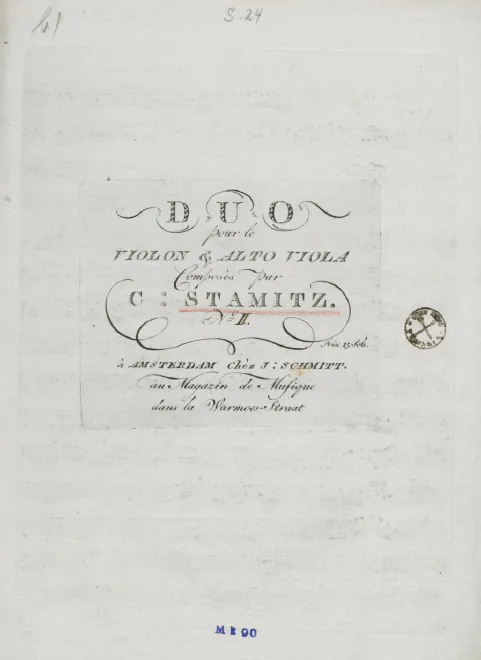 S. 24
DUO
pour le
VIOLON & ALTO VIOLA
Composés par
C : STAMITZ.
Nº II.
Prix 25 Sols.
à AMSTERDAM Chèz J : SCHMITT.
au Magazin de Musique
dans la Warmoes-Straat
M k 90